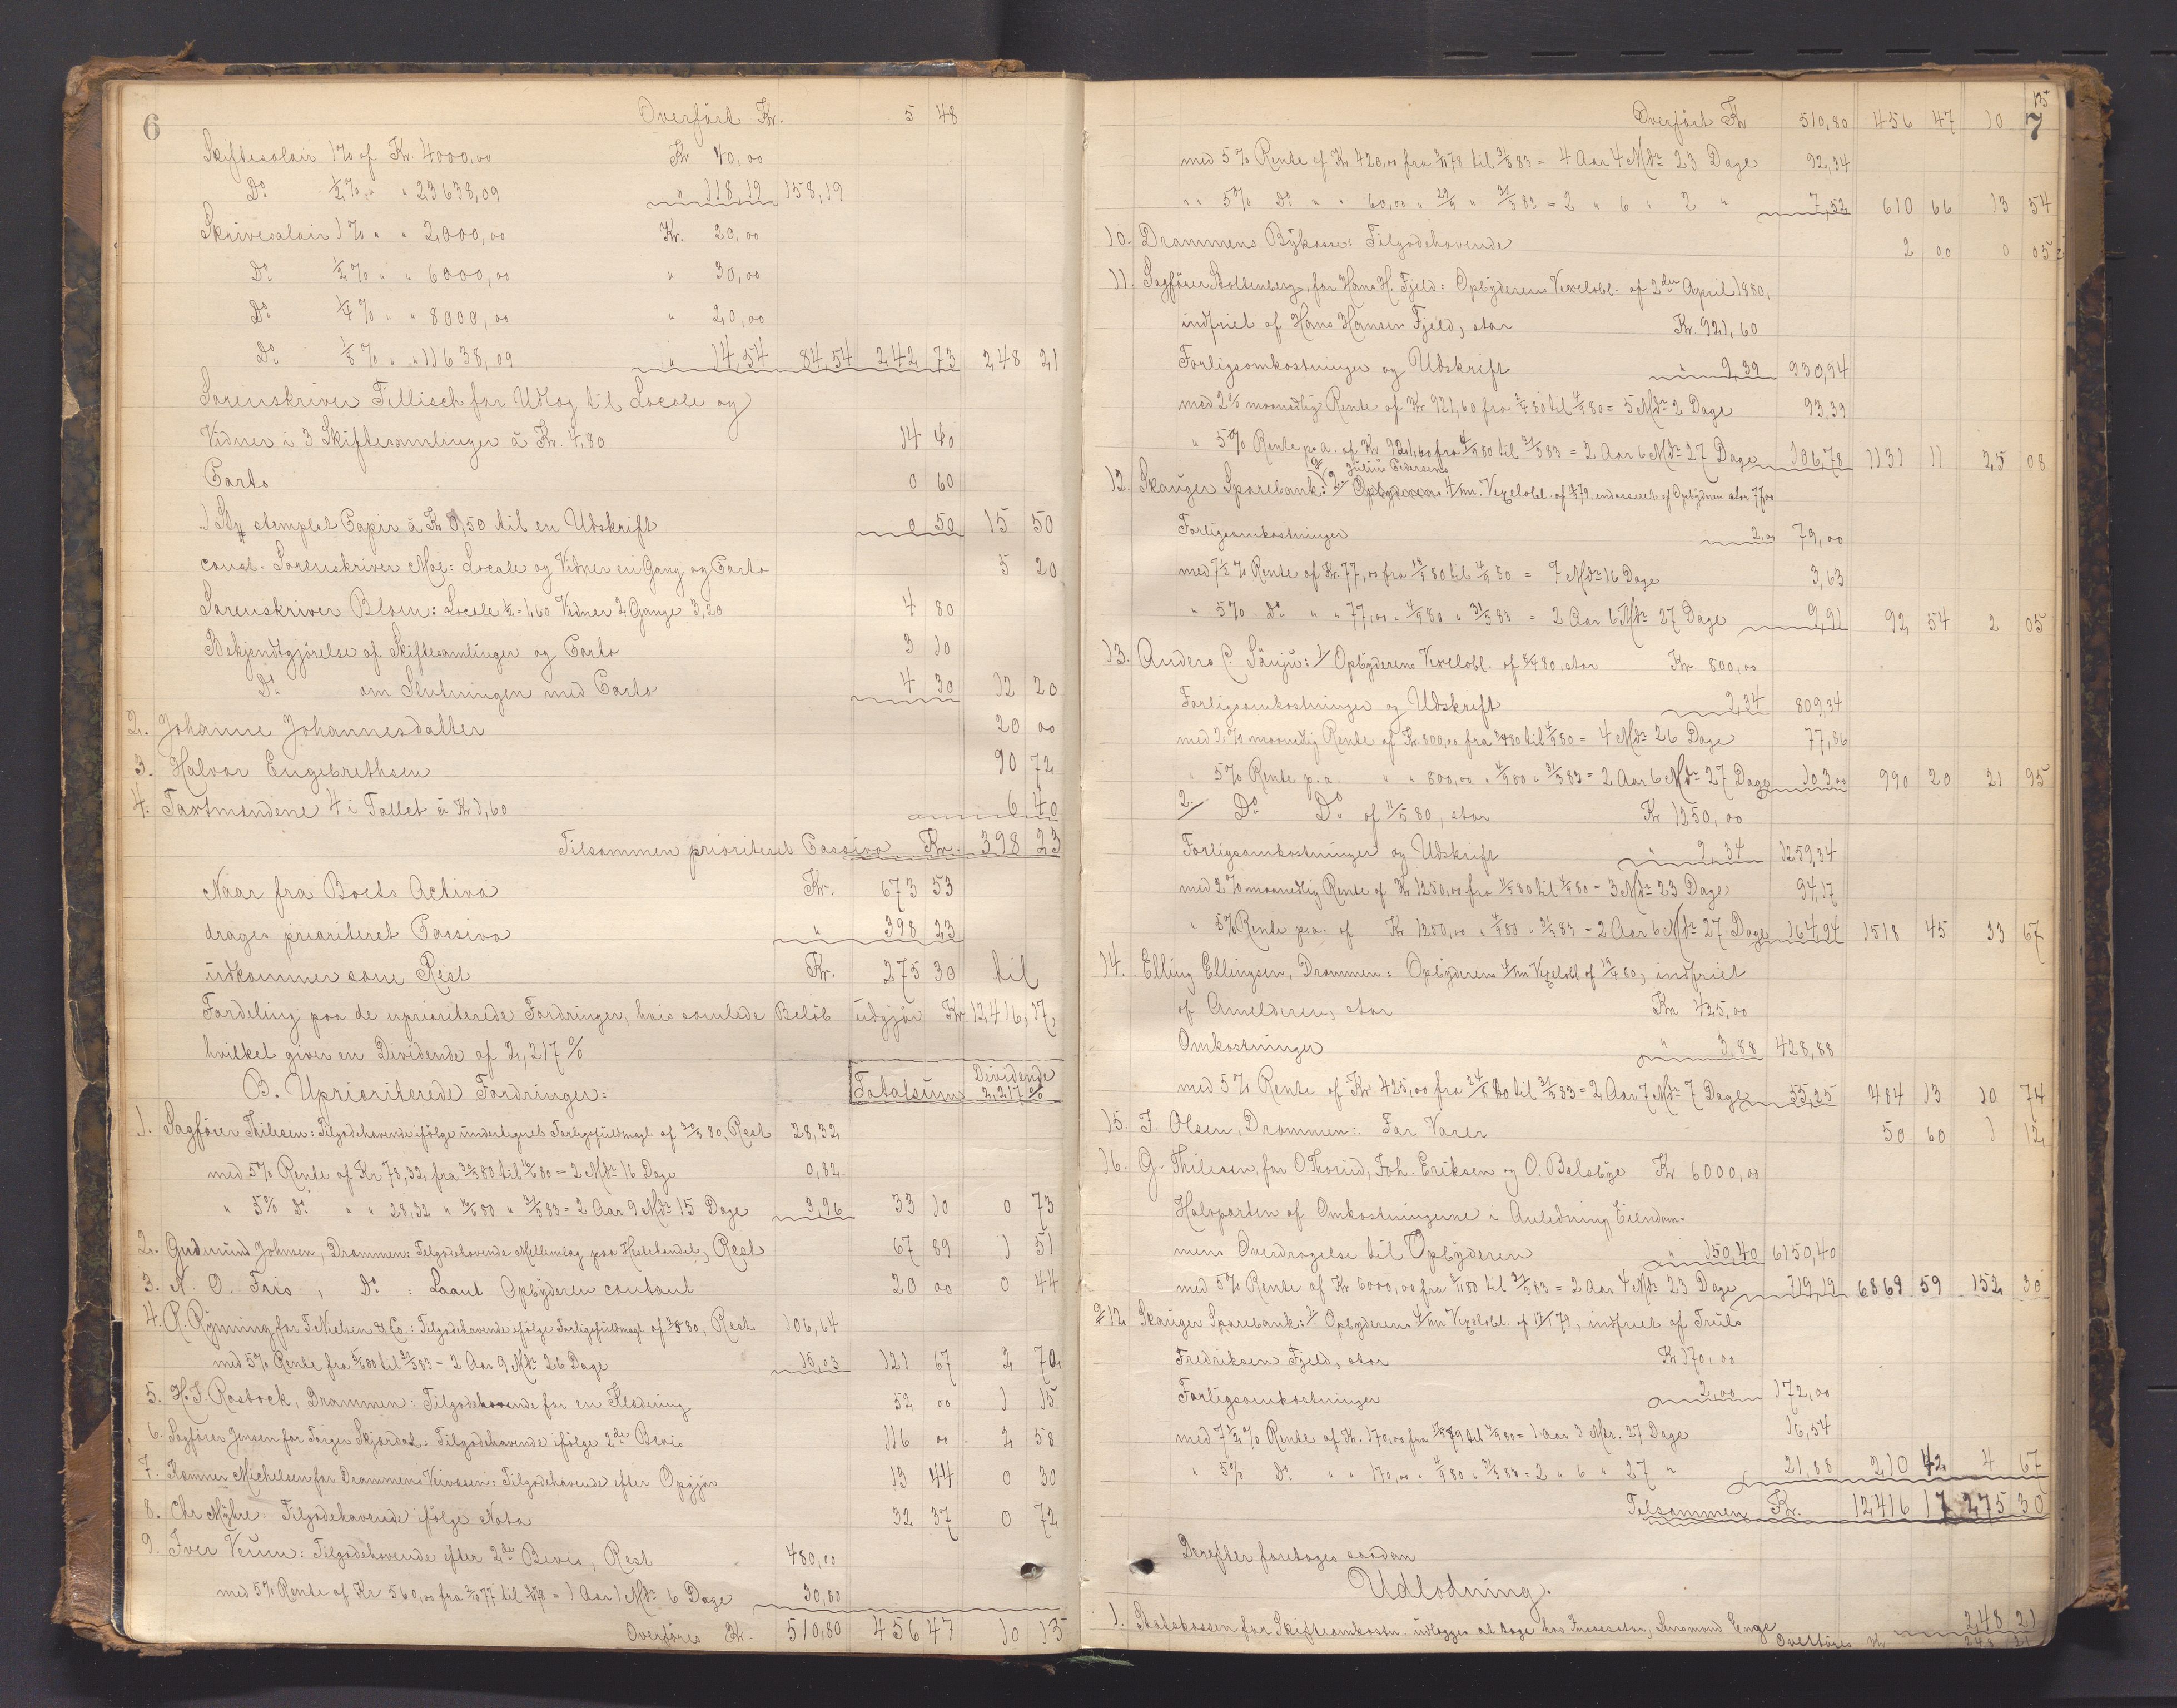 6
Overført Kr. 5 48
Skiftesalair 1% af Kr. 4000,00 Kr. 40,00
Do ½% " " 23638,09 " 118,19 158,19
Skrivesalair 1% " " 2000,00 Kr. 20,00
Do ½% " " 6000,00 " 30,00
Do ¼% " " 8000,00 " 20,00
Do ⅛% " " 11638,09 " 14,54 84,54 242 73 248 21
Sorenskriver Tillisch for Udlæg til Locale og
Vidner i 3 Skiftesamlinger á Kr. 4,80 14 40
Porto 0 60
1 St. stemplet Papir á Kr 0,50 til en Udskrift 0 50 15 50
const. Sorenskriver Moe: Locale og Vidner en Gang og Porto 5 20
Sorenskriver Blom: Locale ½ = 1,60 Vidner 2 Gange 3,20 4 80
Bekjendtgjørelse af Skiftesamlinger og Porto 3 10
Do. om Slutningen med Porto 4 30 12 20
2. Johanne Johannesdatter 20 00
3. Halvor Engebrethsen 90 72
4. Taxtmændene 4 i Tallet á Kr 1,60 6 40
Tilsammen prioriteret Passiva Kr. 398 23
Naar fra Boets Activa Kr. 673 53
drages prioriteret Passiva " 398 23
udkommer som Rest Kr. 275 30 til
Fordeling paa de uprioriterede Fordringer, hvis samlede Beløb udgjør Kr. 12416,17,
hvilket giver en Dividende af 2,217%
B. Uprioriterede Fordringer: Totalsum Dividende 2,217%
1. Sagfører Thilesen: Tilgodehavende ifølge undertegnet Forligsfuldmagt af 30/3 80, Rest 28,32
med 5% Rente af Kr 78,32 fra 30/3 80 til 16/6 80 = 2 Mdr 16 Dage 0,82
" 5% Do " " 28,32 " 16/6 80 " 31/3 83 = 2 Aar 9 Mdr 15 Dage 3,96 33 10 0 73
2. Gudmund Johnsen, Drammen: Tilgodehavende Mellemlag paa Hestehandel, Rest 67 89 1 51
3. N. O. Friis, Do : Laant Opbyderen contant 20 00 0 44
4. P. Rynning for T. Nielsen & Co.: Tilgodehavende ifølge Forligsfuldmagt af 3/5 80, Rest 106,64
med 5% Rente fra 5/6 80 til 31/3 83 = 2 Aar 9 Mdr 26 Dage 15,03 121 67 2 70
5. H. J. Rostock, Drammen: Tilgodehavende for en Klædning 52 00 1 15
6. Sagfører Jensen for Torger Skjørdal: Tilgodehavende ifølge 2de Bevis 116 00 2 58
7. Kæmner Michelsen for Drammens Veivæsen: Tilgodehavende efter Opgjør 13 44 0 30
8. Chr Myhre: Tilgodehavende ifølge Nota 32 37 0 72
9. Iver Veum: Tilgodehavende efter 2de Bevis, Rest 480,00
med 5% Rente af Kr 560,00 fra 2/10 77 til = 1 Aar 1 Mdr 6 Dage 30,80
Overføres Kr. 510,80 456 47 10 13
7
Overført Kr 510,80 456 47 10 13
med 5% Rente af Kr 420,00 fra 8/11 78 til 31/3 83 = 4 Aar 4 Mdr 23 Dage 92,34
" " 5% Do " " 60,00 " 29/9 " 31/3 83 = 2 " 6 " 2 " 7,52 610 66 13 54
10. Drammens Bykasse: Tilgodehavende 2 00 0 05
11. Sagfører Stoltenberg, for Hans H. Fjeld: Opbyderens Vexelobl. af 2den April 1880,
indfriet af Hans Hansen Fjeld, stor Kr. 921,60
Forligsomkostninger og Udskrift " 9,39 930,94
med 2% maanedlig Rente af Kr 921,60 fra 2/4 80 til 4/9 80 = 5 Mdr 2 Dage 93,39
" 5% Rente p. a. af Kr 921,60 fra 4/9 80 til 31/3 83 = 2 Aar 6 Mdr 27 Dage 106,78 1131 11 25 08
Juliu Pedersens
12. Skauger Sparebank: 2. Opbyderens 4/m. Vexelobl. af 79, endosseret af Opbyderen stor 77,00
Forligsomkostninger 2,00 79,00
med 7½% Rente af Kr. 77,00 fra 18/1 80 til 4/9 80 = 7 Mdr 16 Dage 3,63
" 5% Do " " 77,00 " 4/9 80 " 31/3 83 = 2 Aar 6 Mdr 27 Dage 9,91 92 54 2 05
13. Anders P. Sönju: 1/ Opbyderens Vexelobl. af 8/4 80, stor Kr 800,00
Forligsomkostninger og Udskrift 9,34 809,34
med 2% maanedlig Rente af Kr. 800,00 fra 8/4 80 til 4/9 80 = 4 Mdr 26 Dage 77,86
" 5% Rente p. a. " " 800,00 " 4/9 80 " 31/3 83 = 2 Aar 6 Mdr 27 Dage 103,00 990 20 21 95
2/ Do Do af 11/5 80, stor Kr 1250,00
Forligsomkostninger og Udskrift " 9,34 1259,34
med 2% maanedlig Rente af Kr 1250,00 fra 11/5 80 til 4/9 80 = 3 Mdr 23 Dage 94,17
" 5% Rente p. a. af Kr 1250,00 " 4/9 80 " 31/3 83 = 2 Aar 6 Mdr 27 Dage 164,94 1518 45 33 67
14. Elling Ellingsen, Drammen: Opbyderens 4/m Vexelobl af 80, indfriet
af Anmelderen, stor Kr 425,00
Omkostninger " 3,88 428,88
med 5% Rente af Kr 425,00 fra 24/8 80 til 31/3 83 = 2 Aar 7 Mdr 7 Dage 55,25 484 13 10 74
15. F. Olsen, Drammen: For Varer 50 60 1 12
16. G. Thilesen, for O. Thorud, Joh. Eriksen og O. Belsbye Kr 6000,00
Halvparten af Omkostningerne i Anledning Eiendom-
mens Overdragelse til Opbyderen " 150,40 6150,40
med 5% Rente af Kr 6000,00 fra 8/11 80 til 31/3 83 = 2 Aar 4 Mdr 23 Dage 719,19 6869 59 152 30
a 12 Skauger Sparebank: 1/ Opbyderens 4/m Vexelobl. af 79, indfriet af Truls
Fredriksen Fjeld, stor Kr 170,00
Forligsomkostninger 2,00 172,00
med 7½% Rente af Kr. 170,00 fra 79 til 4/9 80 = 1 Aar 3 Mdr. 27 Dage 16,54
" 5% Do " " 170,00 " 4/9 80 " 31/3 83 = 2 " 6 " 27 " 21,88 210 42 4 67
Tilsammen Kr. 12416 17 275 30
Derefter foretages saadan
Udlodning.
1. Statskassen for Skifteomkostn. udlægges at tage hos Incassator, Lensmand Enge 248 21
Overføres Kr 248 21